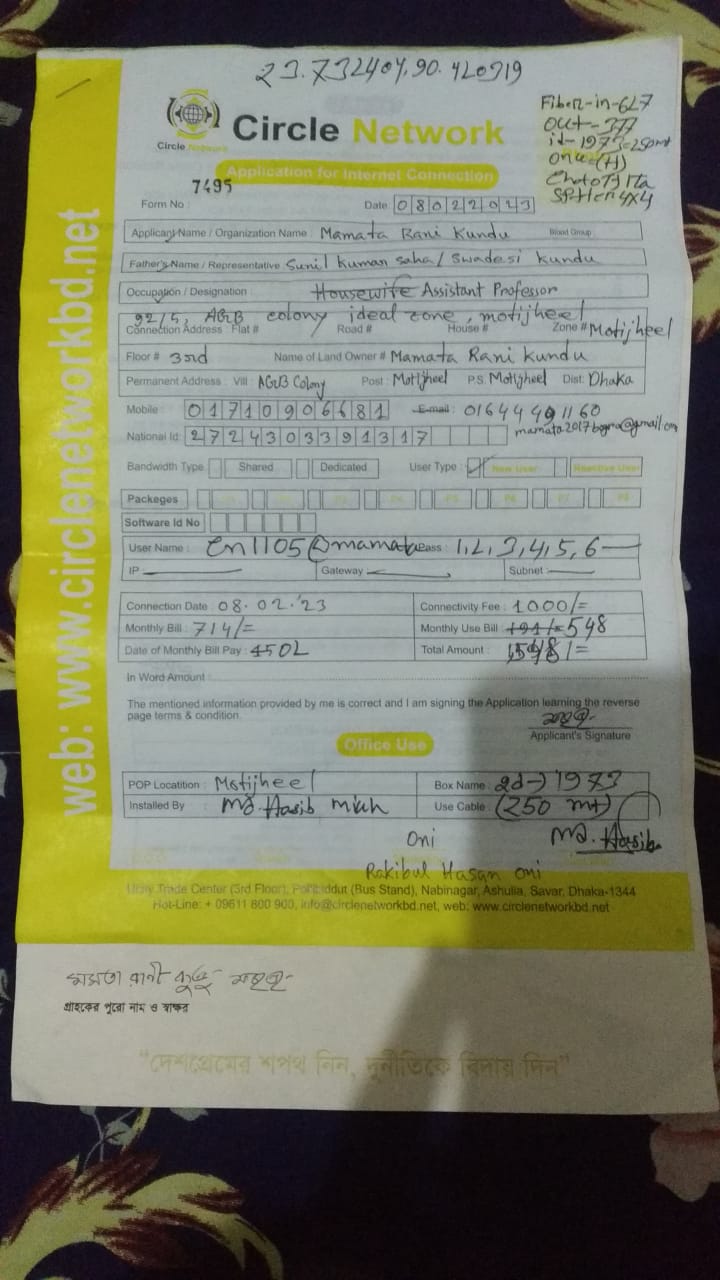 23.732404, 90.420319
Fiber-in-627
out-377
id-1973=250mt
onu-(H)
Splitter 4x4
Circle Network
Circle Network
Application for Internet Connection
7495
Form No :
Date: 08022023
Applicant Name / Organization Name : Mamata Rani Kundu Blood Group
Father's Name / Representative Sunil Kumar saha / Swadesi kundu
Occupation / Designation : Housewife Assistant Professor
92/5, AGB colony ideal zone, motijheel
Connection Address : Flat # Road # House # Zone # Motijheel
Floor # 3rd Name of Land Owner # Mamata Rani Kundu
Permanent Address : Vill : AGB Colony Post : Motijheel P.S. Motijheel Dist: Dhaka
Mobile : 01710906681 E-mail : 01644491160
mamata2017bogra@gmail.com
National Id: 2724303391317
Bandwidth Type Shared Dedicated User Type : New User Reactive User
Packeges P1 P2 P3 P4 P5 P6 P7 P8
Software Id No
User Name : Cn1105@mamata Pass : 1,2,3,4,5,6
IP : Gateway : Subnet :
Connection Date : 08.02.'23 Connectivity Fee : 1000/=
Monthly Bill : 714/= Monthly Use Bill : 548
Date of Monthly Bill Pay : Total Amount : 1548/=
In Word Amount :
The mentioned information provided by me is correct and I am signing the Application learning the reverse
page terms & condition.
Applicant's Signature
Office Use
POP Locatition : Motijheel Box Name : 1973
Installed By : Md. Hasib miah Use Cable : (250 mt)
Oni Md. Hasib
Rakibul Hasan Oni
Unity Trade Center (3rd Floor), Pollibiddut (Bus Stand), Nabinagar, Ashulia, Savar, Dhaka-1344
Hot-Line: + 09611 800 900, info@circlenetworkbd.net, web: www.circlenetworkbd.net
web: www.circlenetworkbd.net
মমতা রানী কুন্ডু
গ্রাহকের পুরো নাম ও স্বাক্ষর
"দেশপ্রেমের শপথ নিন, দুর্নীতিকে বিদায় দিন"